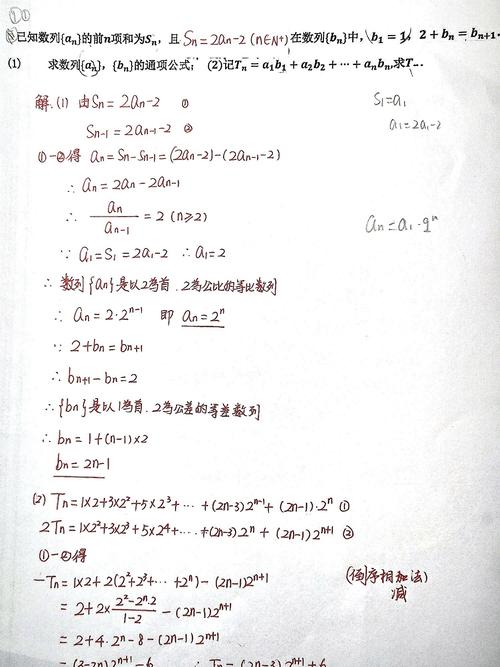 ①
已知数列{aₙ}的前n项和为Sₙ，且 Sₙ=2aₙ-2 (n∈N⁺) 在数列{bₙ}中，b₁=1，2+bₙ=bₙ₊₁.
(1) 求数列{aₙ}，{bₙ}的通项公式；(2)记Tₙ=a₁b₁+a₂b₂+⋯+aₙbₙ,求T
解.(1) 由Sₙ=2aₙ-2 ①
S₁=a₁
a₁=2a₁-2
Sₙ₋₁=2aₙ₋₁-2 ②
①-②得 aₙ=Sₙ-Sₙ₋₁=(2aₙ-2)-(2aₙ₋₁-2)
∴ aₙ=2aₙ-2aₙ₋₁
∴ aₙ/aₙ₋₁=2 (n≥2)
aₙ=a₁·qⁿ
∵ a₁=S₁=2a₁-2 ∴a₁=2
∴ 数列{aₙ}是以2为首.2为公比的等比数列
∴ aₙ=2·2ⁿ⁻¹ 即 aₙ=2ⁿ
∵ 2+bₙ=bₙ₊₁
∴ bₙ₊₁-bₙ=2
∴{bₙ}是以1为首.2为公差的等差数列
∴ bₙ=1+(n-1)×2
bₙ=2n-1
(2) Tₙ=1×2+3×2²+5×2³+⋯+(2n-3)2ⁿ⁻¹+(2n-1)·2ⁿ ①
2Tₙ=1×2²+3×2³+5×2⁴+⋯+(2n-3)2ⁿ+(2n-1)2ⁿ⁺¹ ②
①-②得
-Tₙ=1×2+2(2²+2³+⋯+2ⁿ)-(2n-1)2ⁿ⁺¹
(倒序相加法)
减
=2+2×(2²-2ⁿ·2)/(1-2)-(2n-1)2ⁿ⁺¹
=2+4·2ⁿ-8-(2n-1)2ⁿ⁺¹
=(3-2n)2ⁿ⁺¹-6 ∴Tₙ=(2n-3)2ⁿ⁺¹+6